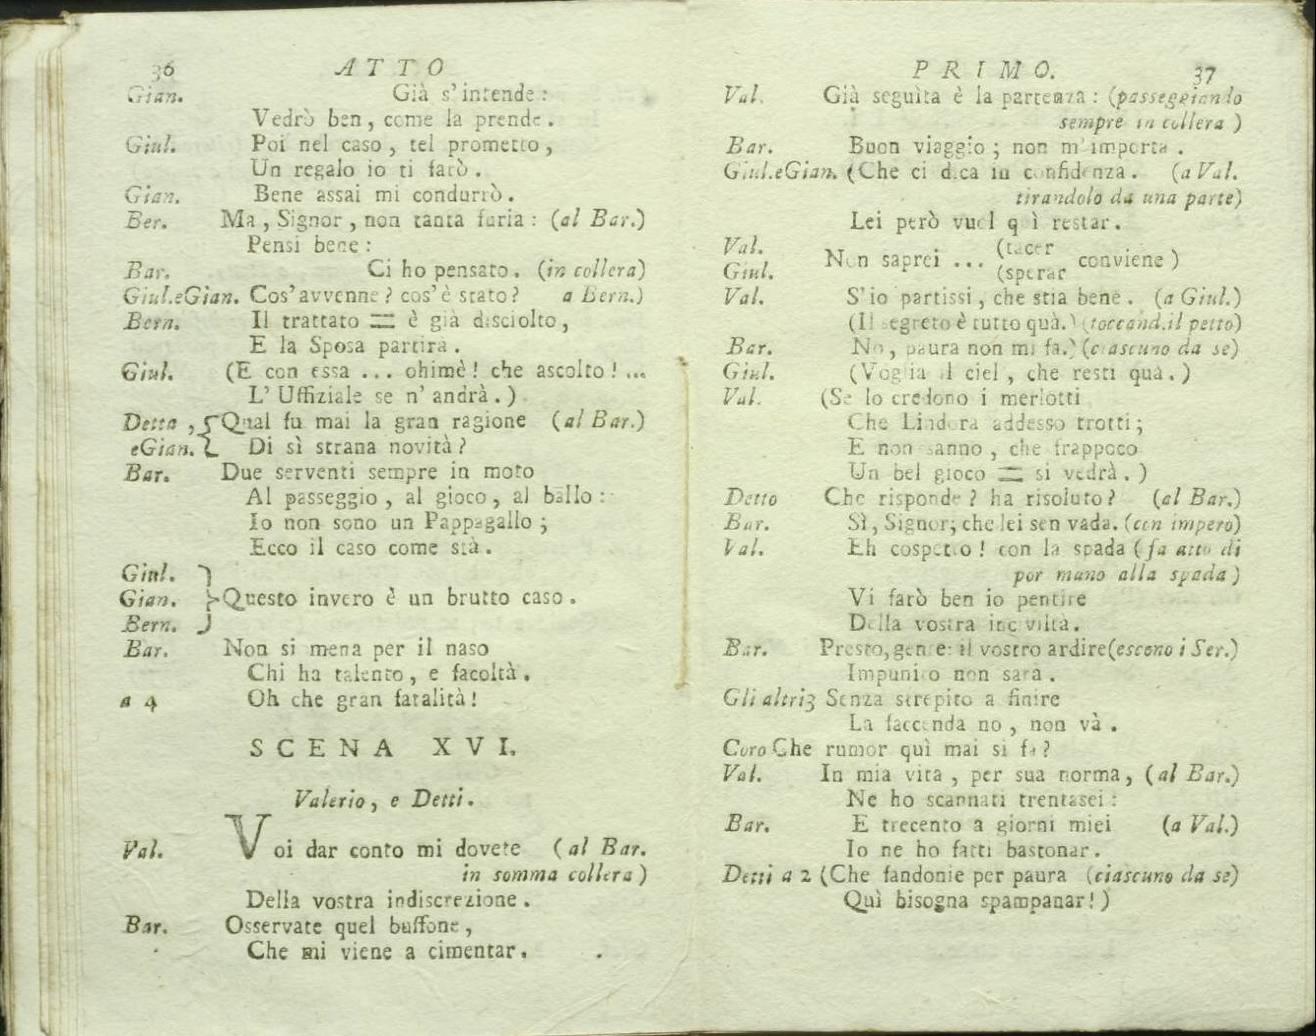 36 ATTO
Gian. Già s'intende:
Vedrò ben, come la prende.
Giul. Poi nel caso, tel prometto,
Un regalo io ti farò.
Gian. Bene assai mi condurrò.
Ber. Ma, Signor, non tanta furia: (al Bar.)
Pensi bene:
Bar. Ci ho pensato. (in collera)
Giul.eGian. Cos'avvenne? cos'è stato? a Bern.)
Bern. Il trattato = è già disciolto,
E la Sposa partirà.
Giul. (E con essa ... ohimè! che ascolto! ...
L'Uffiziale se n'andrà.)
Detta, Qual fu mai la gran ragione (al Bar.)
eGian. Di sì strana novità?
Bar. Due serventi sempre in moto
Al passeggio, al gioco, al ballo:
Io non sono un Pappagallo;
Ecco il caso come stà.
Giul.
Gian. Questo invero è un brutto caso.
Bern.
Bar. Non si mena per il naso
Chi ha talento, e facoltà.
a 4 Oh che gran fatalità!
SCENA XVI.
Valerio, e Detti.
Val. Voi dar conto mi dovete (al Bar.
in somma collera)
Della vostra indiscrezione.
Bar. Osservate quel buffone,
Che mi viene a cimentar.
PRIMO. 37
Val. Già seguìta è la partenza: (passeggiando
sempre in collera)
Bar. Buon viaggio; non m'importa.
Giul.eGian. (Che ci dica in confidenza. (a Val.
tirandolo da una parte)
Lei però vuol quì restar.
Val. (tacer
Non saprei ... conviene)
Giul. (sperar
Val. S'io partissi, che stia bene. (a Giul.)
(Il segreto è tutto quà.) (toccand.il petto)
Bar. No, paura non mi fa.) (ciascuno da se)
Giul. (Voglia il ciel, che resti quà.)
Val. (Se lo credono i merlotti
Che Lindora addesso trotti;
E non sanno, che frappoco
Un bel gioco = si vedrà.)
Detto Che risponde? ha risoluto? (al Bar.)
Bar. Sì, Signor; che lei sen vada. (con impero)
Val. Eh cospetto! con la spada (fa atto di
por mano alla spada)
Vi farò ben io pentire
Della vostra inciviltà.
Bar. Presto, gente: il vostro ardire(escono i Ser.)
Impunito non sarà.
Gli altri3 Senza strepito a finire
La faccenda no, non và.
Coro Che rumor quì mai si fa?
Val. In mia vita, per sua norma, (al Bar.)
Ne ho scannati trentasei:
Bar. E trecento a giorni miei (a Val.)
Io ne ho fatti bastonar.
Detti a 2 (Che fandonie per paura (ciascuno da se)
Quì bisogna spampanar!)